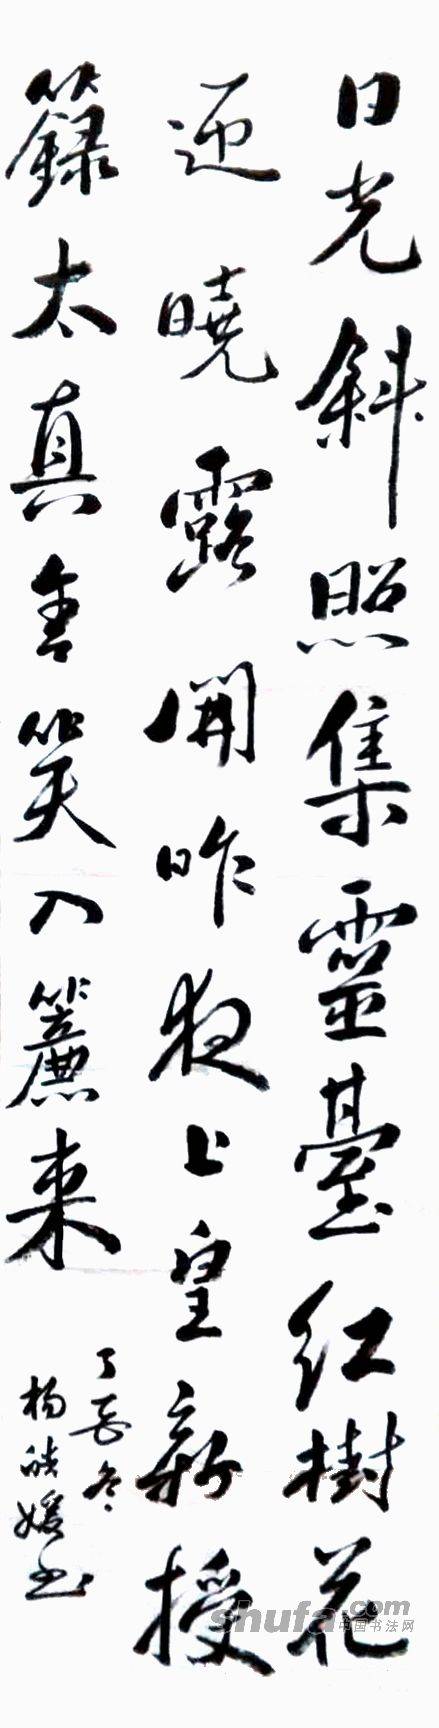 日光斜照集靈臺红樹花
迎曉露開昨夜上皇新授
籙太真含笑入簾来
丁亥冬
杨媛书
shufa.com
中国书法网